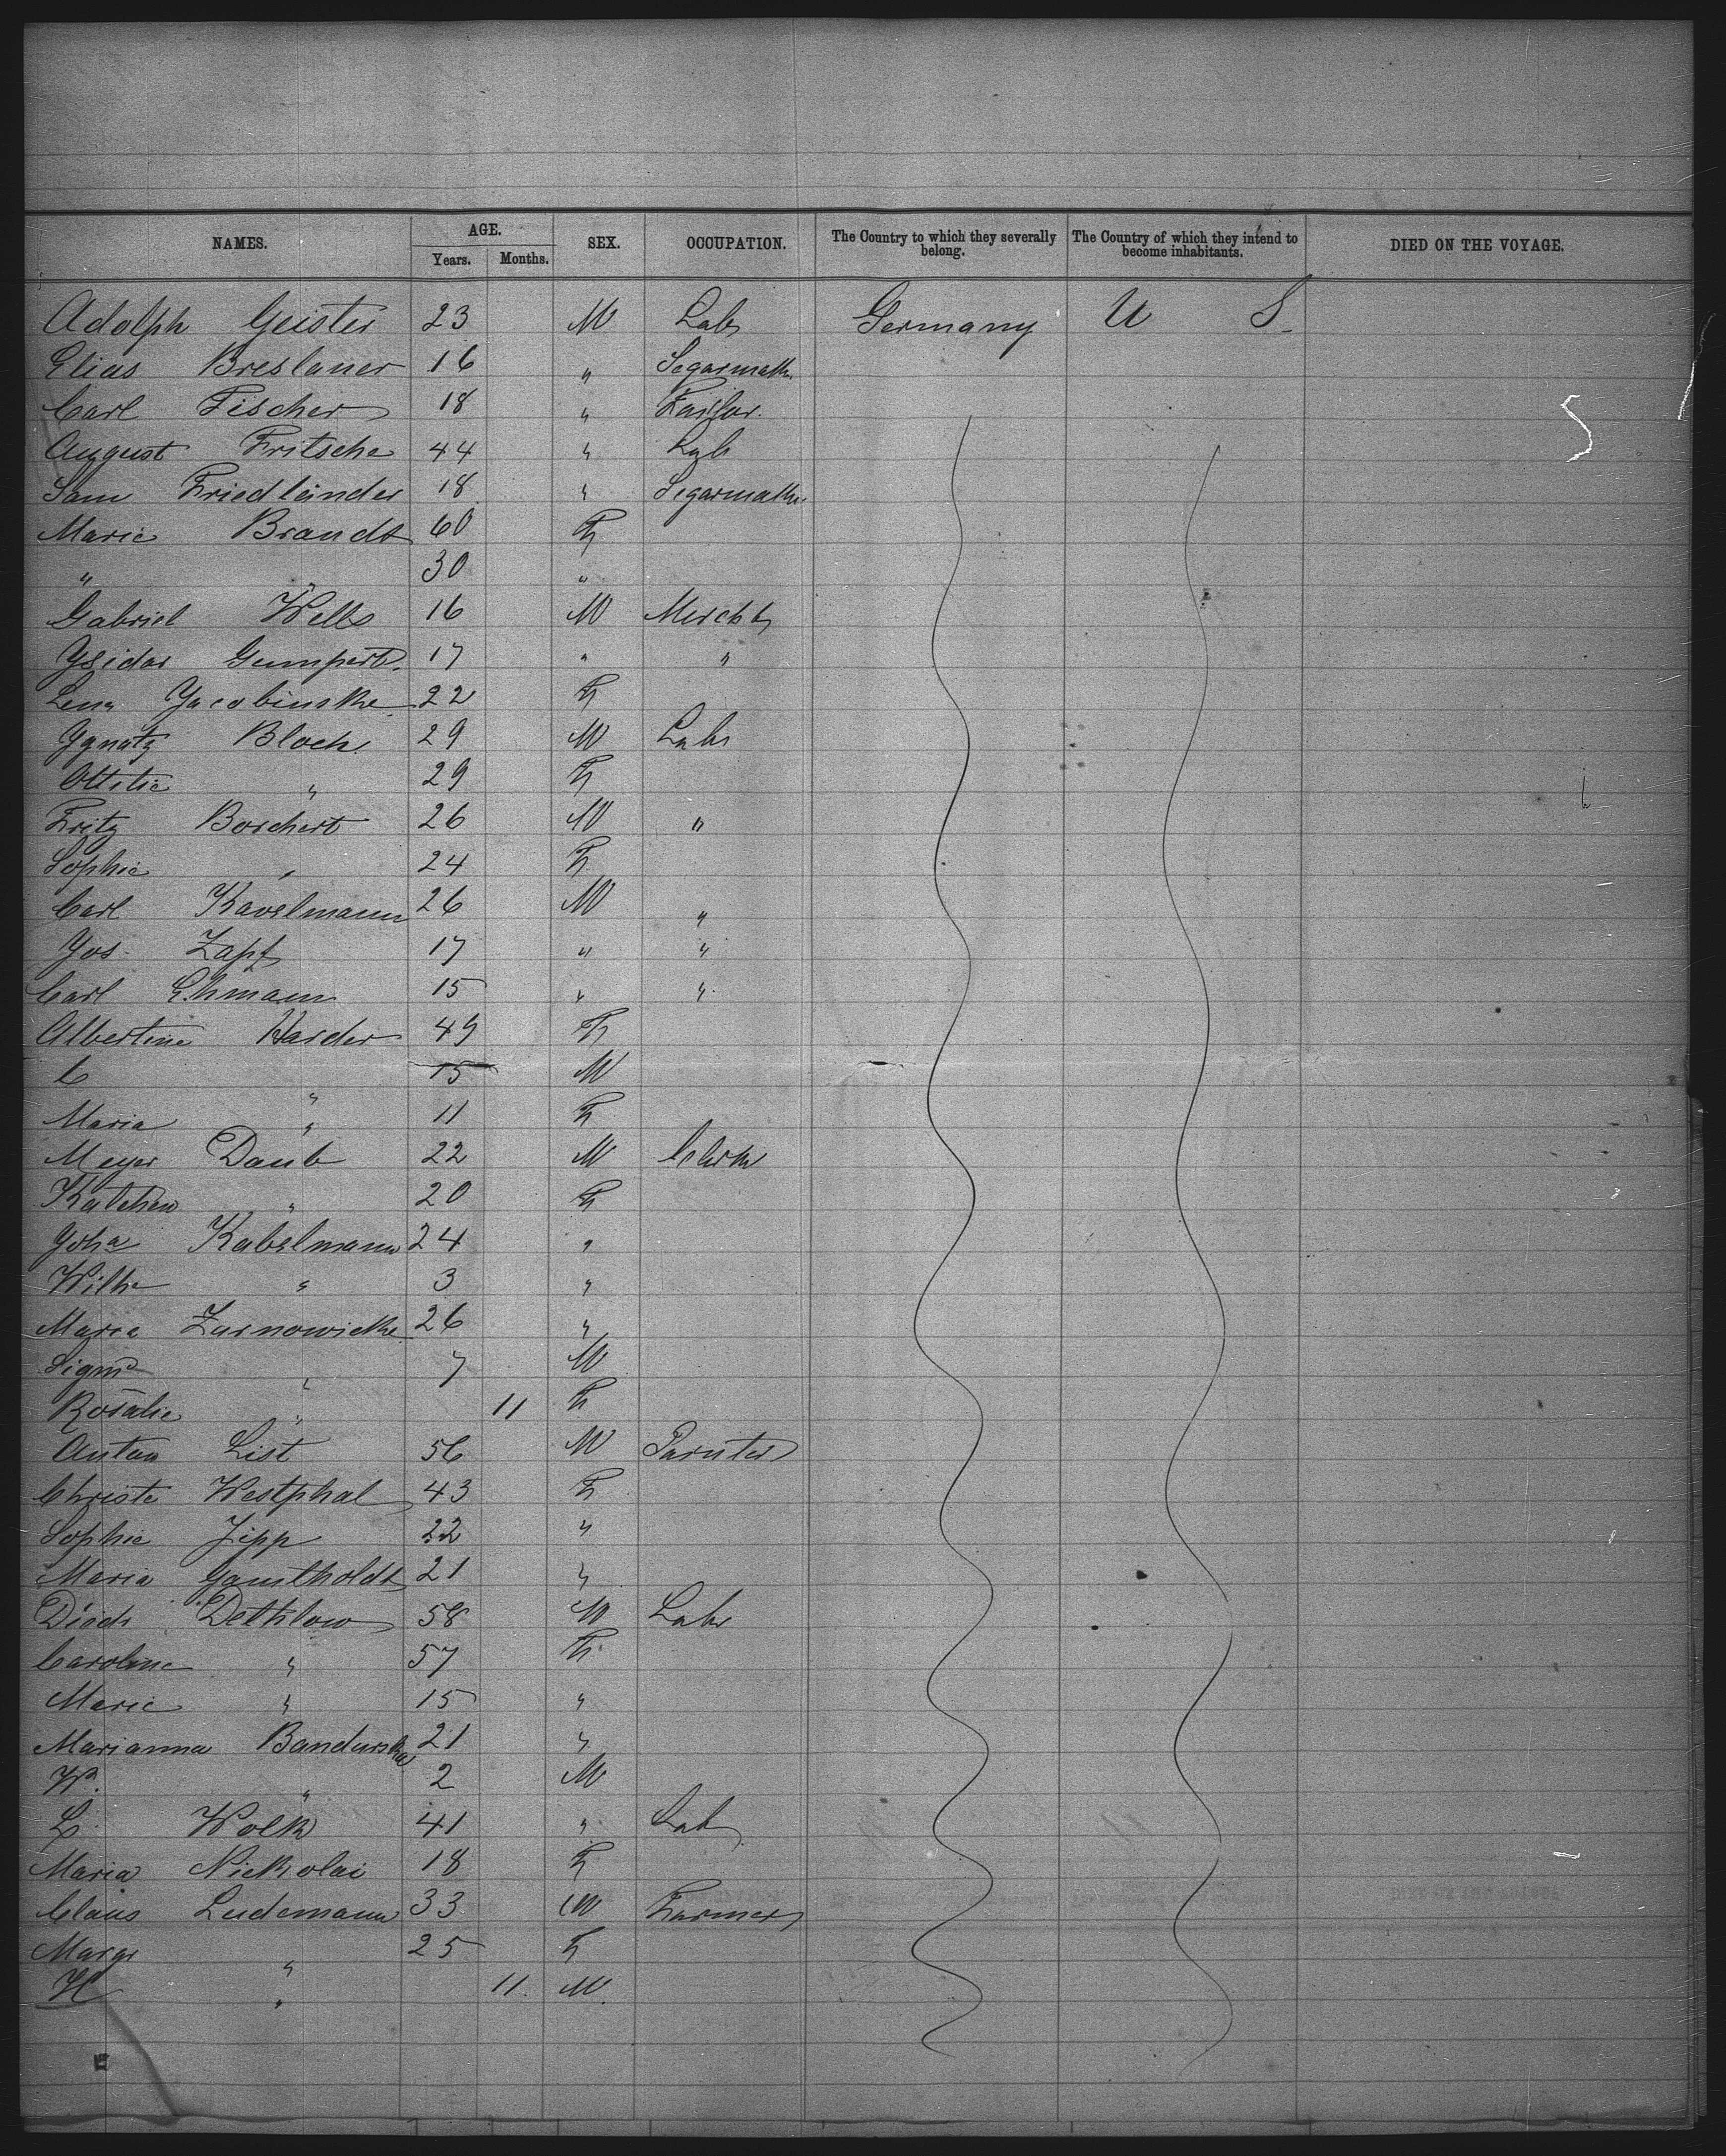 NAMES. AGE. SEX. OCCUPATION. The Country to which they severally belong. The Country of which they intend to become inhabitants. DIED ON THE VOYAGE.
Years. Months.
Adolph Geister 23 M Labr Germany U S
Elias Breslauer 16 " Segarmakr
Carl Fischer 18 " Tailor.
August Fritsche 44 " Labr
Sam Friedländer 18 " Segarmakr.
Marie Brandt 60 F
" 30 "
Gabriel Wells 16 M Mercht
Ysidor Gumpert. 17 " "
Lena Jacobinske 22 F
Ygnatz Bloch 29 M Labr
Ottilie " 29 F
Fritz Borchert 26 M "
Sophie " 24 F
Carl Kavelmann 26 M "
Jos. Zapf 17 " "
Carl Ehmann 15 " "
Albertine Harder 49 F
C " 15 M
Maria " 11 F
Meyer Daub 22 M Clerk
Katchen " 20 F
Joha Kabelmann 24 "
Wilhe " 3 "
Maria Zarnowicke 26 "
Sigmd " 7 M
Rosalie " 11 F
Anton List 56 M Painter
Christe Westphal 43 F
Sophie Jipp 22 "
Maria 21 "
Diedr Dethlow 58 M Labr
Caroline " 57 F
Marie " 15 "
Marianna Bandurska 21 "
W. " 2 M
L. Wolk 41 " Lab
Maria Nickolai 18 F
Claus Ludemann 33 M Farmer
Margr " 25 F
H " 11. M.